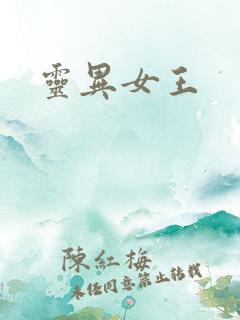 靈異女王
陳紅梅
未經同意禁止轉載